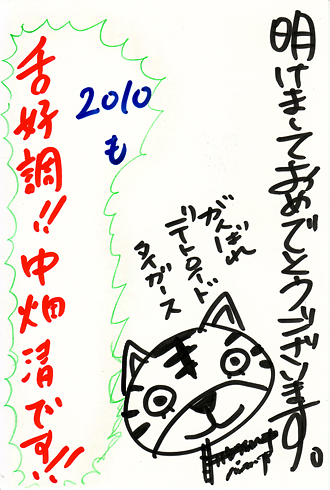 明けましておめでとうございます。
がんばれ
デトロイト
タイガース
2010
も
舌好調!!中畑清です!!